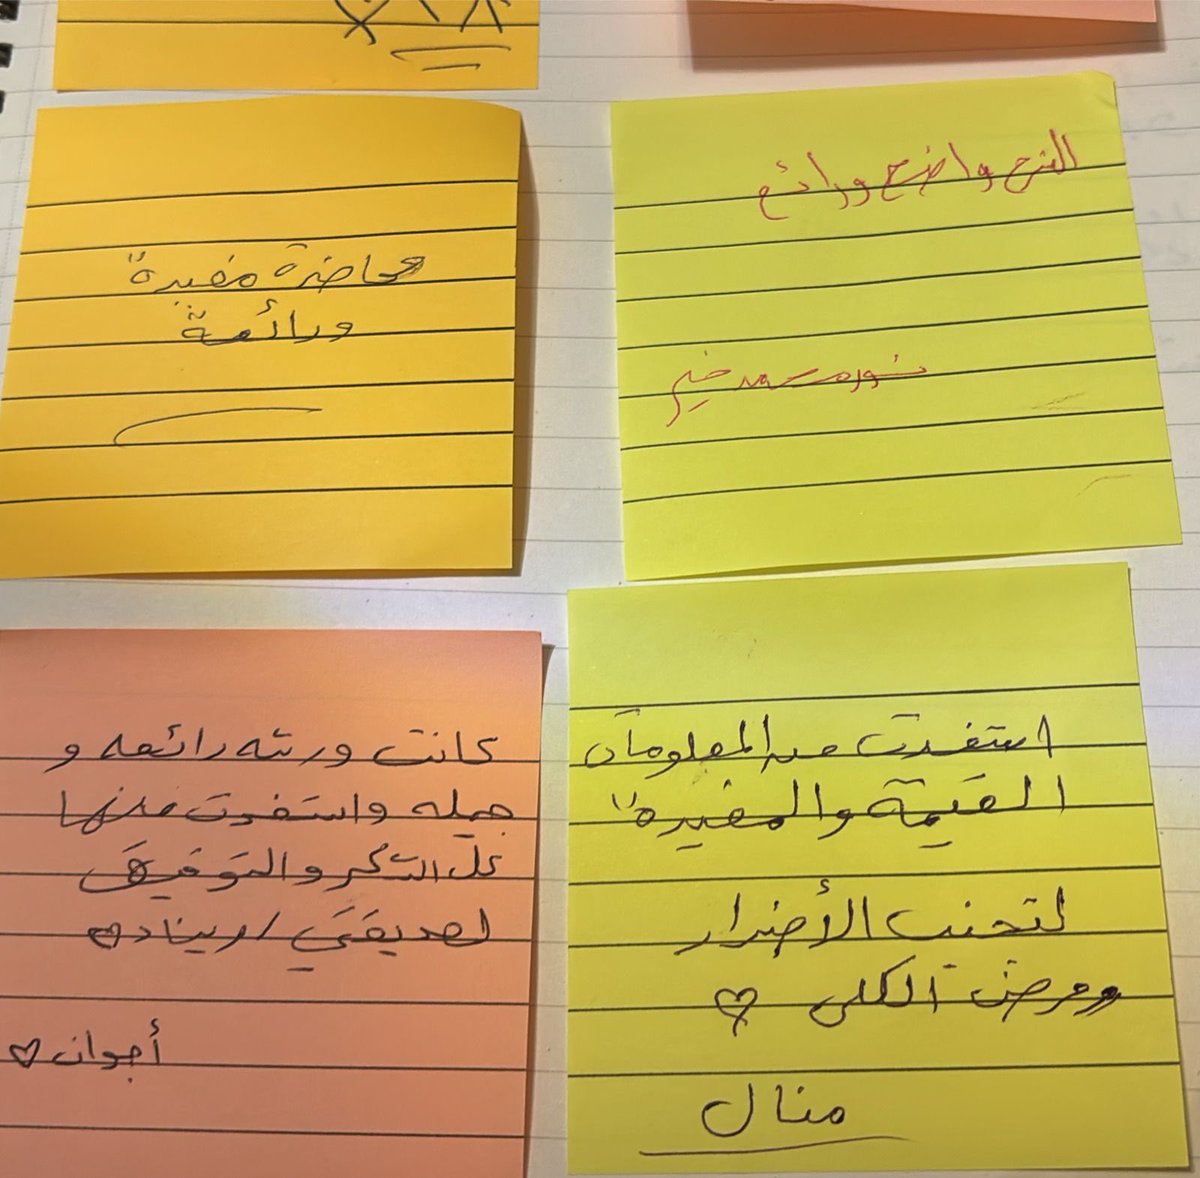 محاضرة مفيدة
ورائعة
الشرح واضح ورائع
نوره سعد
كانت ورشه رائعه و
جميله واستفدت منها
كل الشكر والتوفيق
لصديقتي ريناد
أجوان ♡
استفدت من المعلومات
القيمة والمفيدة
لتجنب الأضرار
ومرض الكلى ♡
منال